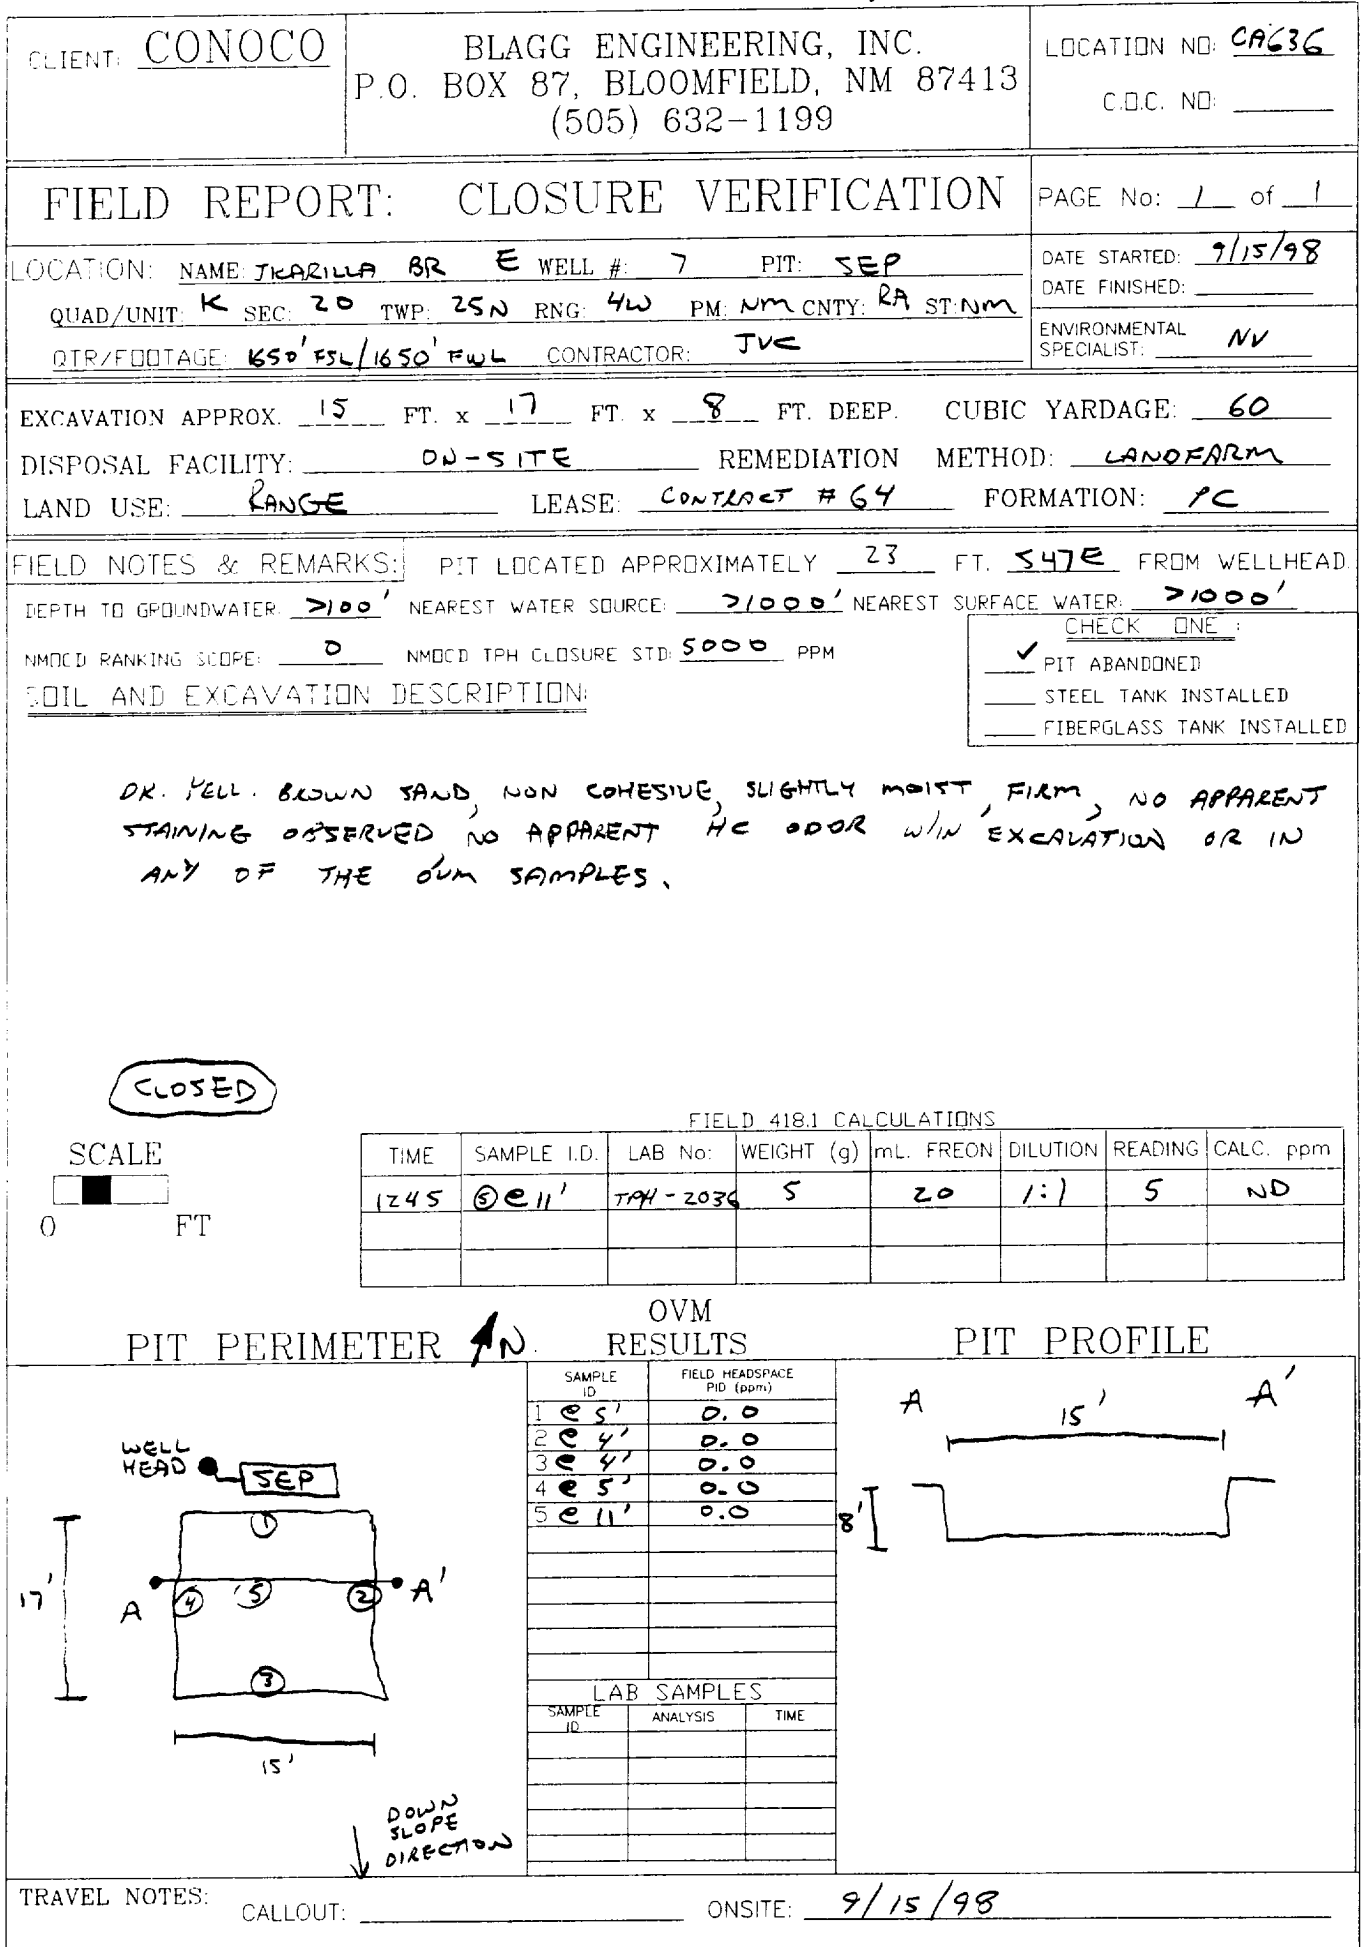 CLIENT: CONOCO
BLAGG ENGINEERING, INC.
P.O. BOX 87, BLOOMFIELD, NM 87413
(505) 632-1199
LOCATION NO: CA636
C.O.C. NO:
FIELD REPORT: CLOSURE VERIFICATION
PAGE No: 1 of 1
LOCATION: NAME: JICARILLA BR E WELL #: 7 PIT: SEP
QUAD/UNIT: K SEC: 20 TWP: 25N RNG: 4W PM: NM CNTY: RA ST: NM
QTR/FOOTAGE: 1650' FSL/1650' FWL CONTRACTOR: JVC
DATE STARTED: 9/15/98
DATE FINISHED:
ENVIRONMENTAL
SPECIALIST: NV
EXCAVATION APPROX. 15 FT. x 17 FT. x 8 FT. DEEP. CUBIC YARDAGE: 60
DISPOSAL FACILITY: ON-SITE REMEDIATION METHOD: LANDFARM
LAND USE: RANGE LEASE: CONTRACT # 64 FORMATION: PC
FIELD NOTES & REMARKS: PIT LOCATED APPROXIMATELY 23 FT. S47E FROM WELLHEAD.
DEPTH TO GROUNDWATER: >100' NEAREST WATER SOURCE: >1000' NEAREST SURFACE WATER: >1000'
NMOCD RANKING SCOPE: 0 NMOCD TPH CLOSURE STD: 5000 PPM
CHECK ONE :
✓ PIT ABANDONED
STEEL TANK INSTALLED
FIBERGLASS TANK INSTALLED
SOIL AND EXCAVATION DESCRIPTION:
DK. YELL. BROWN SAND, NON COHESIVE, SLIGHTLY MOIST, FIRM, NO APPARENT
STAINING OBSERVED, NO APPARENT HC ODOR W/IN EXCAVATION OR IN
ANY OF THE OVM SAMPLES.
CLOSED
SCALE
0 FT
FIELD 418.1 CALCULATIONS
TIME SAMPLE I.D. LAB No: WEIGHT (g) mL. FREON DILUTION READING CALC. ppm
1245 ⑤ @ 11' TPH-2036 5 20 1:1 5 ND
PIT PERIMETER N
OVM
RESULTS
PIT PROFILE
SAMPLE
ID
FIELD HEADSPACE
PID (ppm)
1 @ 5' 0.0
2 @ 4' 0.0
3 @ 4' 0.0
4 @ 5' 0.0
5 @ 11' 0.0
LAB SAMPLES
SAMPLE
ID
ANALYSIS TIME
WELL
HEAD
SEP
①
17'
A ④ ⑤ ② A'
③
15'
DOWN
SLOPE
DIRECTION
A A'
15'
8'
TRAVEL NOTES: CALLOUT: ONSITE: 9/15/98